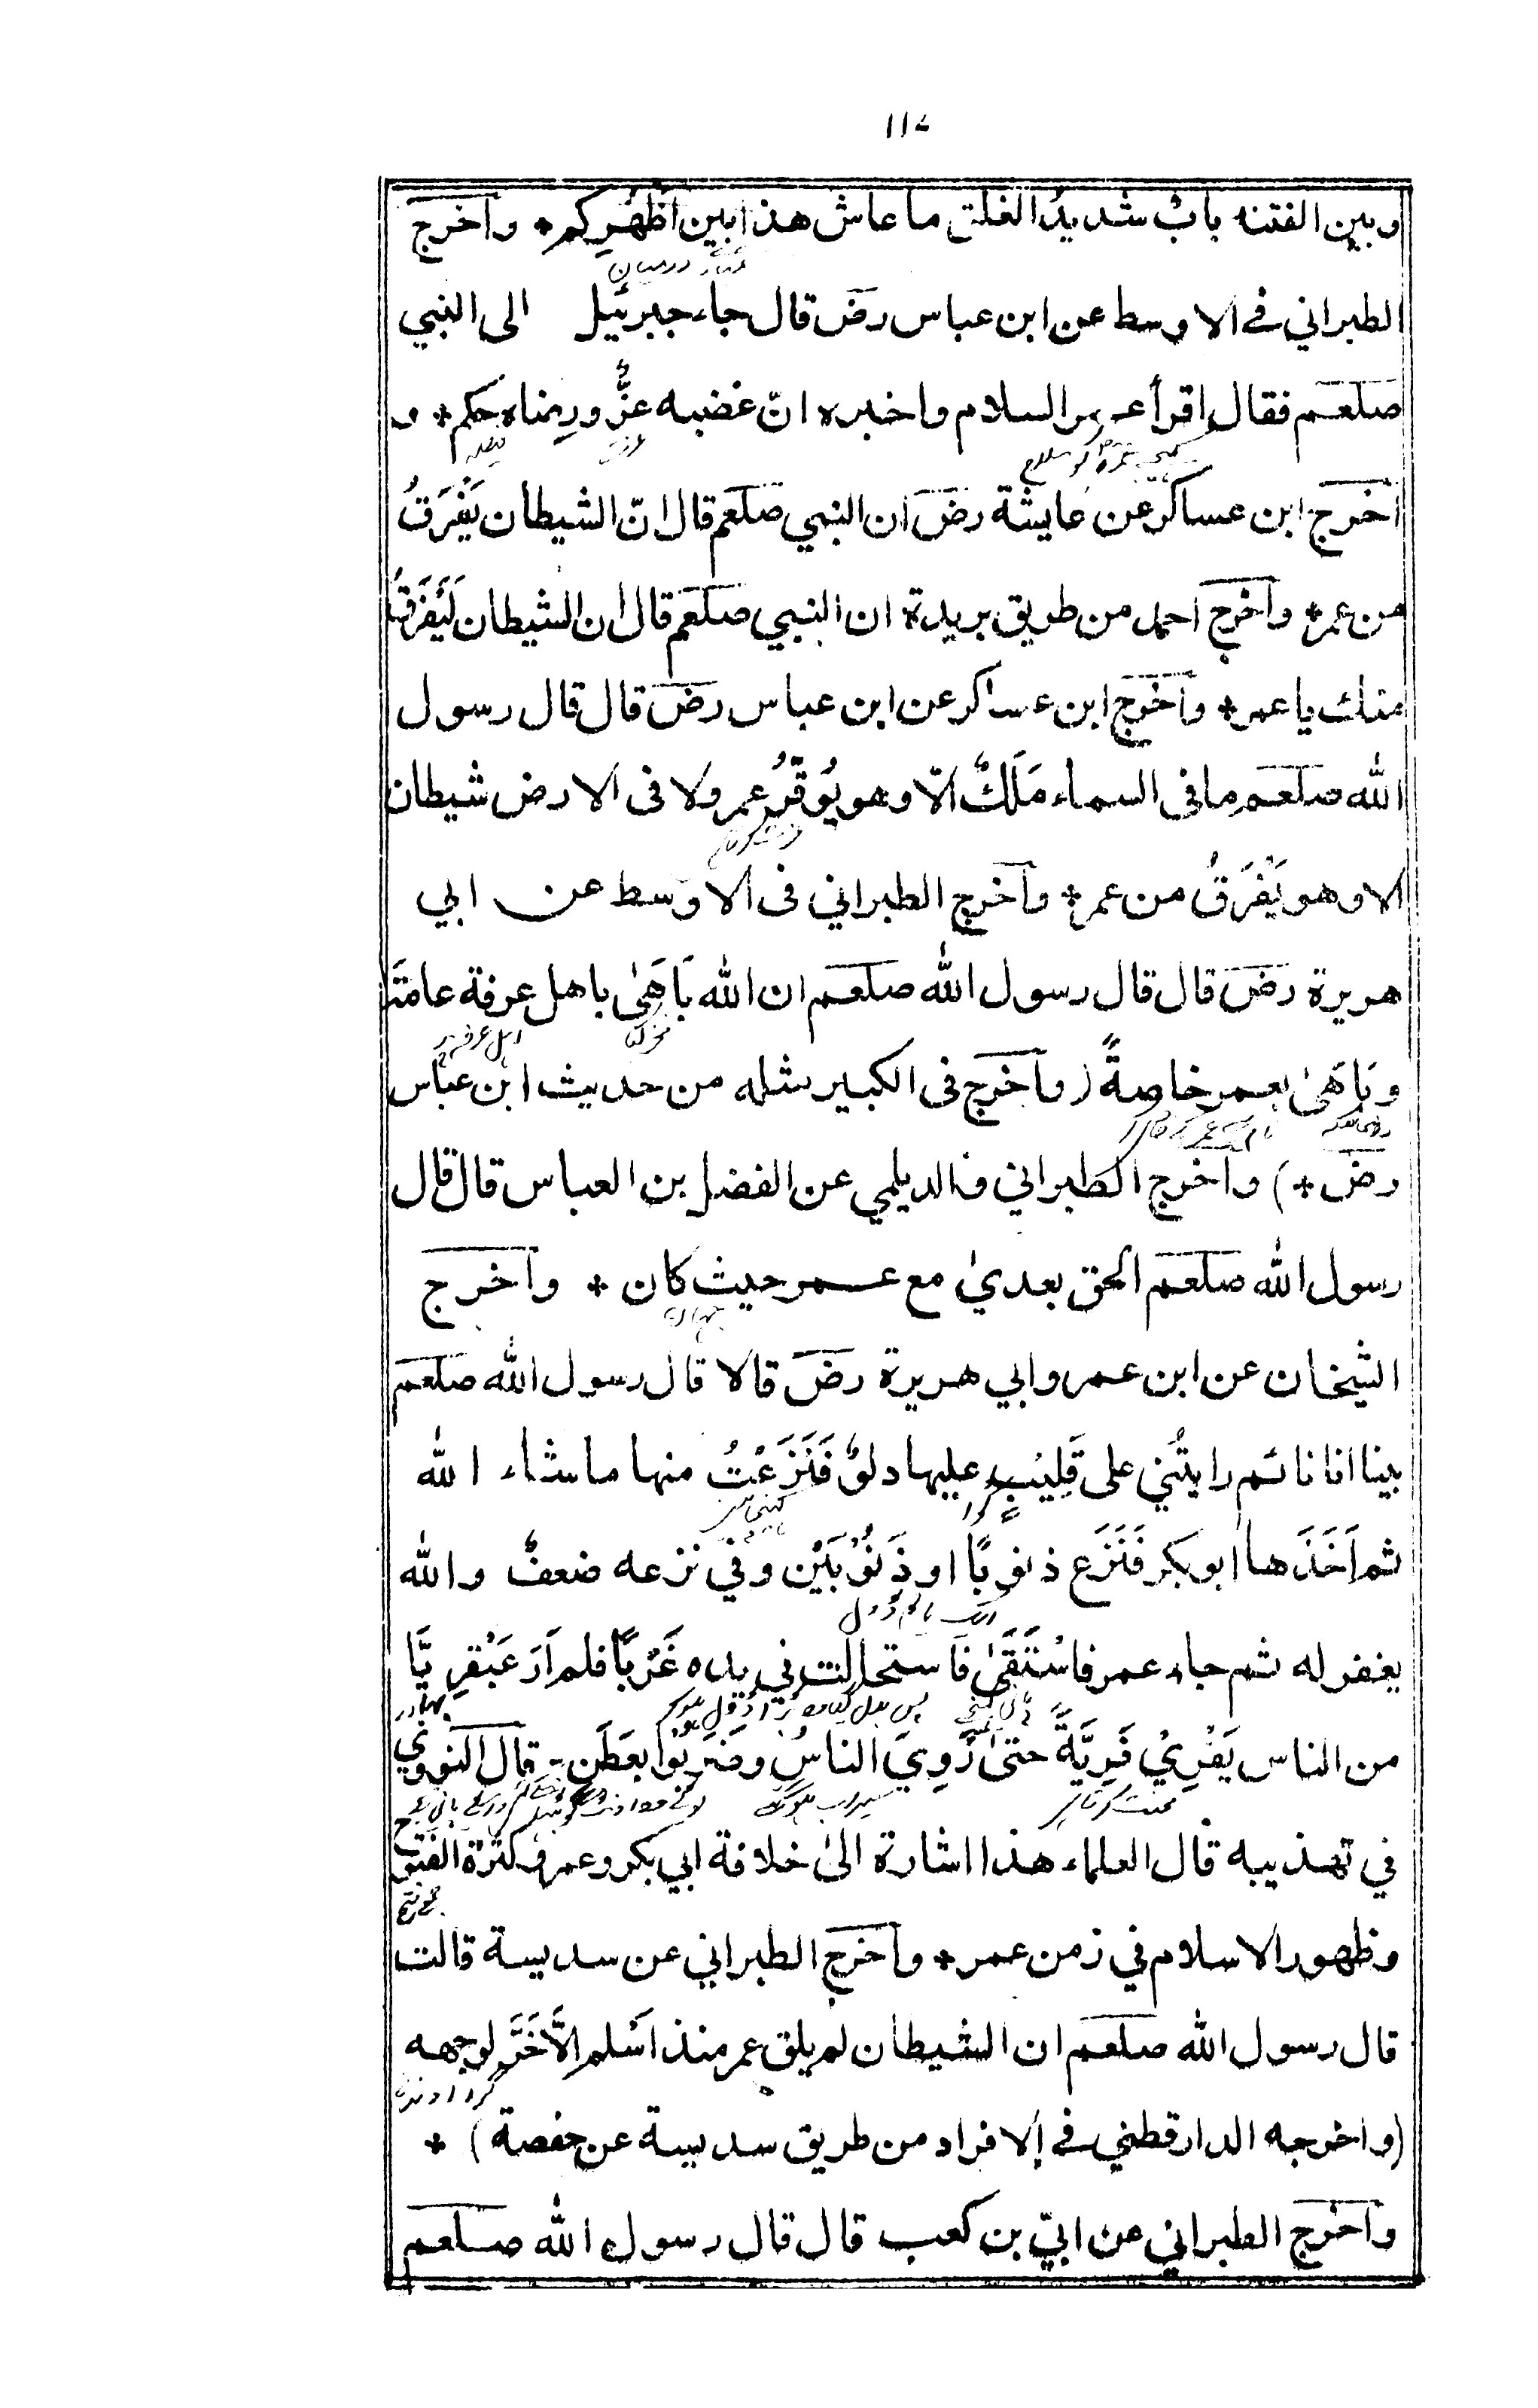 ١١٧
وبين الفتنه بابٌ شديدُ الغلق ما عاش هذا بين اَظهُرِكم * واَخرج
تمہارے درمیان
الطبراني في الاوسط عن ابن عباس رض قال جاء جبرئيل الى النبي
صلعم فقال اقرأ عمر السلام واخبره انّ غضبه عزٌّ ورضاه حكم * و
كہيے عمر كو سلام عزت
اَخرج ابن عساكر عن عايشة رض ان النبي صلعم قال انّ الشيطان يَفْرَقُ
من عمر * واَخرج احمد من طريق بريدة ان النبي صلعم قال ان الشيطان لَيَفْرَقُ
منك يا عمر * واَخرج ابن عساكر عن ابن عباس رض قال قال رسول
الله صلعم ما فى السماء مَلَكٌ الّا وهو يُوَقّرُ عمر ولا فى الارض شيطان
عزت كرتا ہے
الا وهو يَفْرَقُ من عمر * واَخرج الطبراني فى الاوسط عن ابي
هريرة رض قال قال رسول الله صلعم ان الله بَاهَىٰ باهل عرفة عامةَ
فخر كيا اہل عرفہ پر
وبَاهَىٰ بعمر خاصةً (واَخرج فى الكبير مثله من حديث ابن عباس
رض *) واَخرج الطبراني والديلمي عن الفضل بن العباس قال قال
رسول الله صلعم الحق بعدي مع عمر حيث كان * واَخرج
جہان
الشيخان عن ابن عمر وابي هريرة رض قالا قال رسول الله صلعم
بينا انا نائم رايتُني على قَلِيْبٍ عليها دلوٌ فَنَزَعْتُ منها ما شاء الله
كوا
ثم اَخَذَها ابو بكر فَنَزَع ذنوبًا او ذَنُوْبَيْن وفي نزعه ضعفٌ والله
يغفر له ثم جاء عمر فاسْتَقَىٰ فاستحالت في يده غَرْبًا فلم اَرَ عَبْقرِيًّا
بہادر
من الناس يَفْرِيْ فَرِيَّةً حتىٰ رُوِيَ الناسُ وضَرَبُوْا بعَطَن - قال النووي
محنت كرتا ہے سيراب ہوگئے
في تهذيبه قال العلماء هذا اشارة الىٰ خلافة ابي بكر وعمر وكثرة الفتوح
وظهور الاسلام في زمن عمر * واَخرج الطبراني عن سديسة قالت
قال رسول الله صلعم ان الشيطان لم يلق عمر منذ اَسْلم الَّا خَرَّ لوجهه
(واخرجه الدارقطني في الافراد من طريق سديسة عن حفصة) *
واَخرج الطبراني عن ابيّ بن كعب قال قال رسول الله صلعم